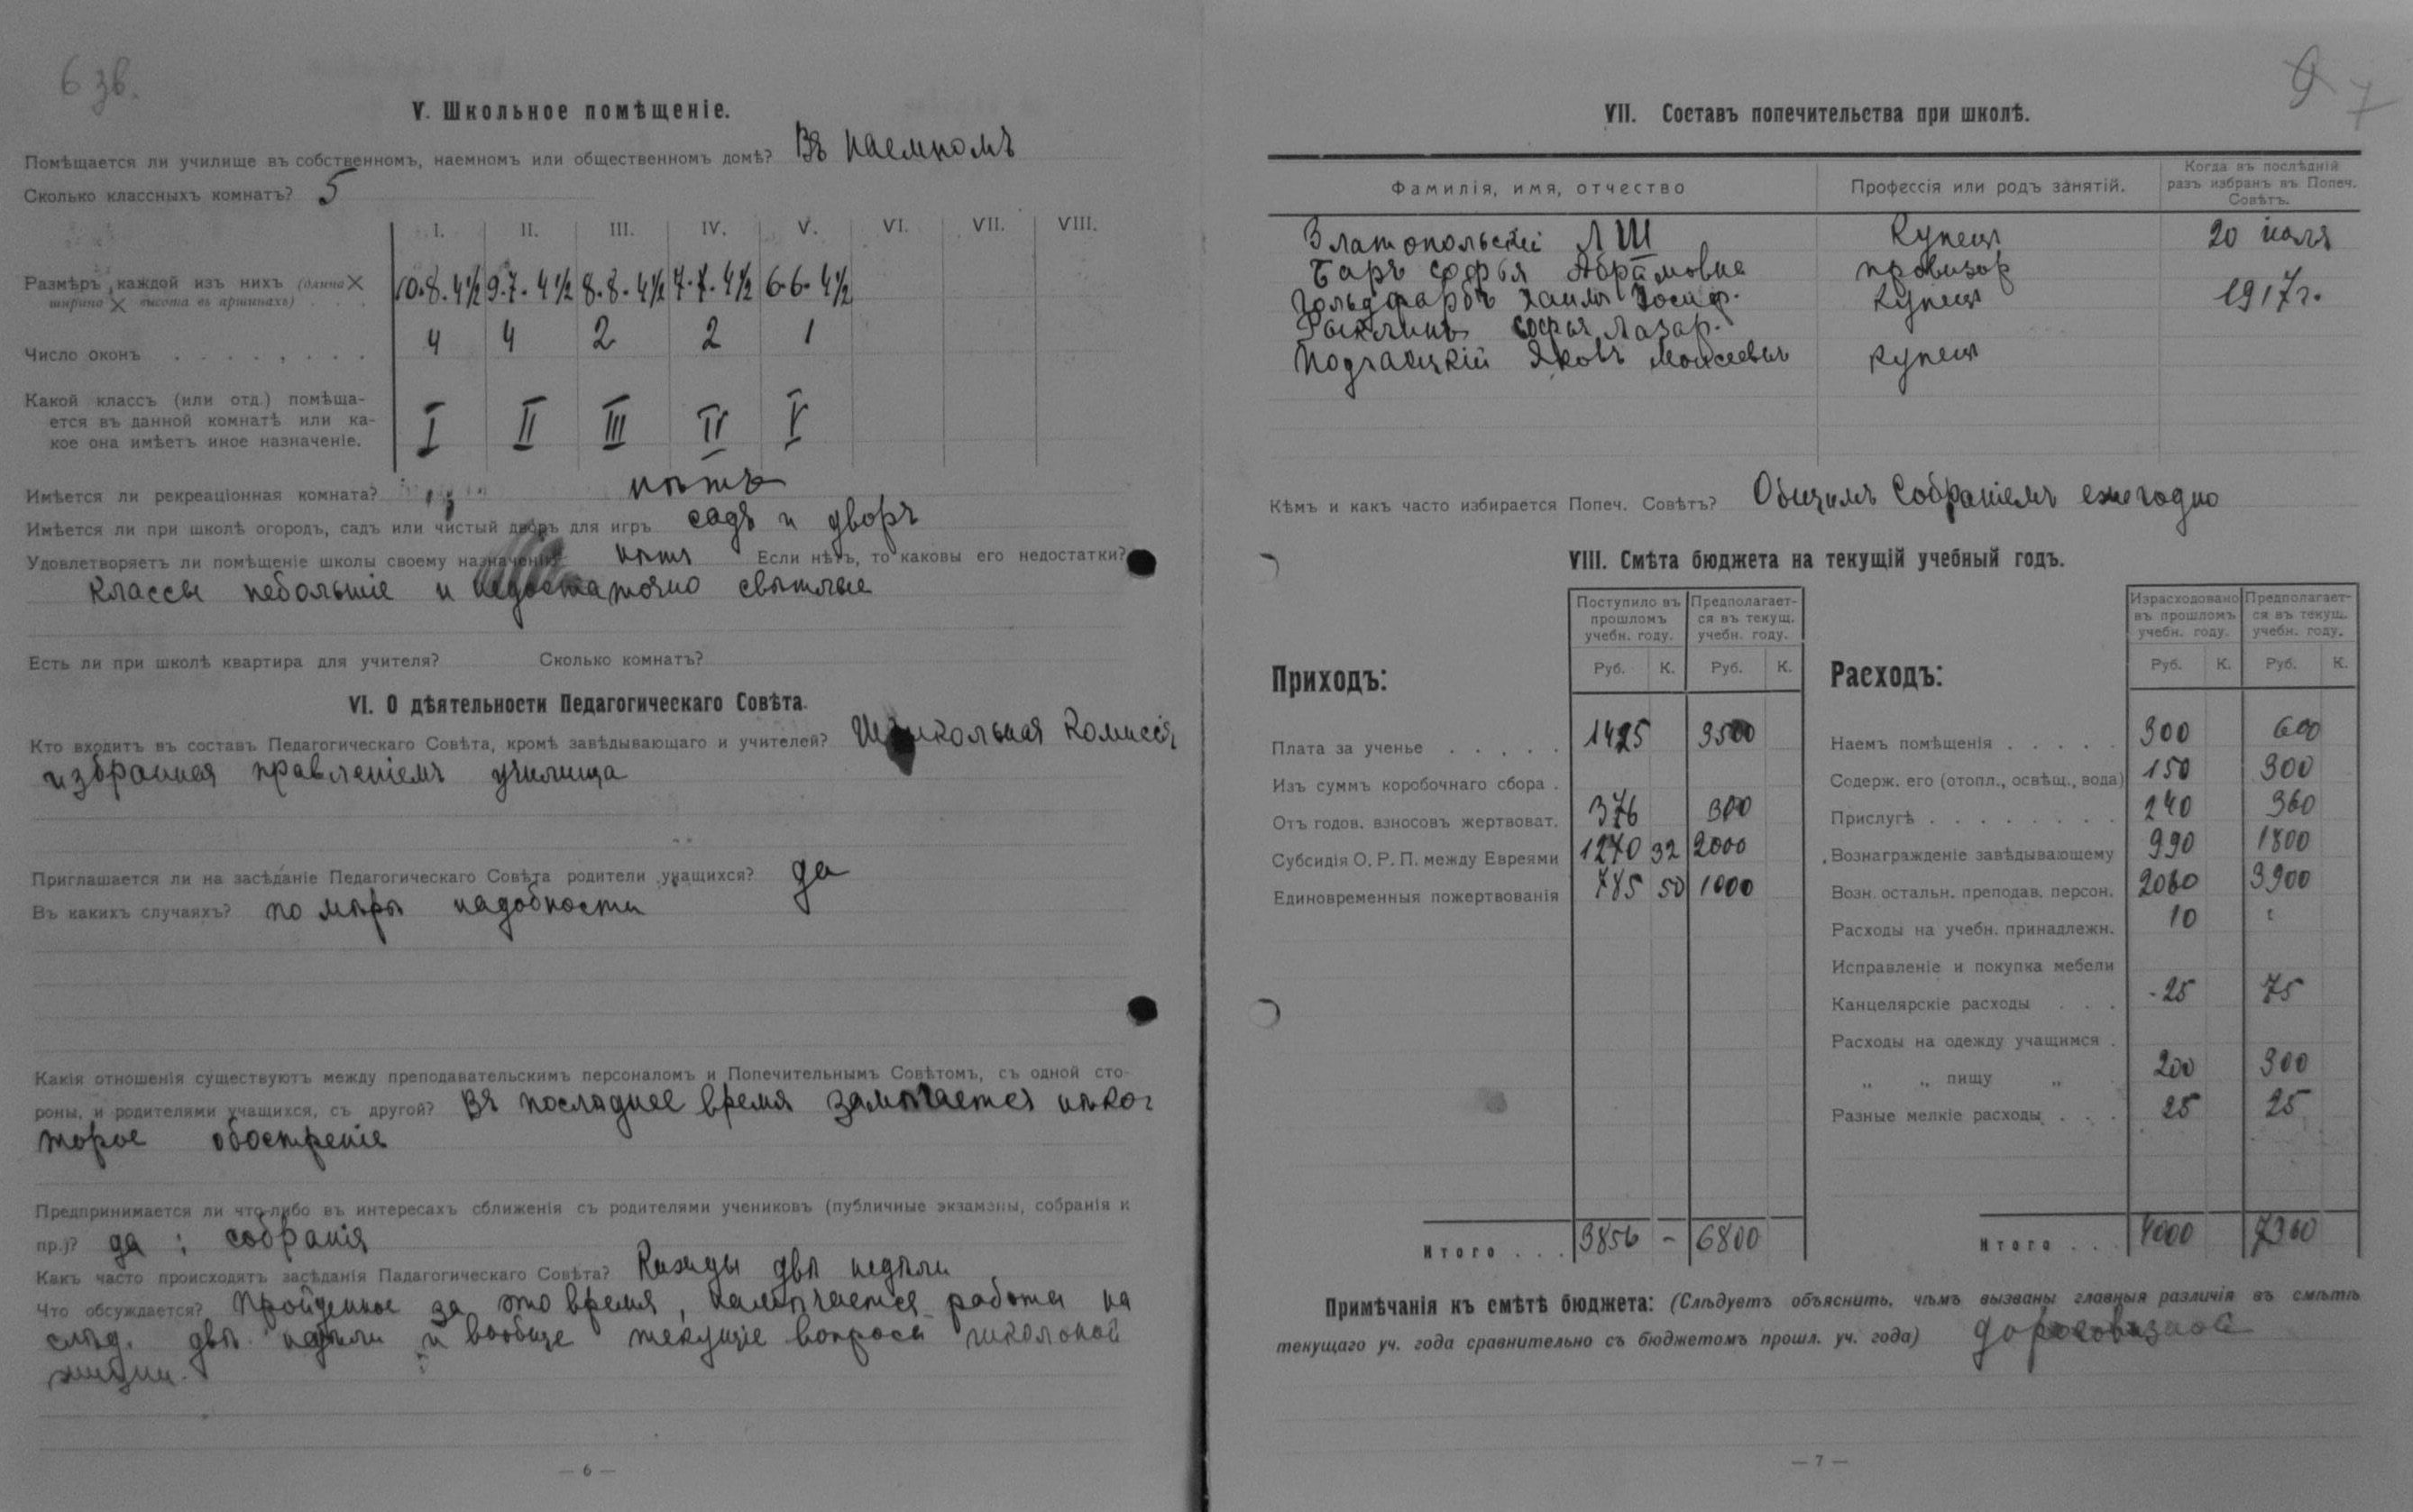 6 зв.
V. Школьное помѣщеніе.
Помѣщается ли училище въ собственномъ, наемномъ или общественномъ домѣ? Въ наемномъ
Сколько классныхъ комнатъ? 5
I. II. III. IV. V. VI. VII. VIII.
Размѣръ каждой изъ нихъ (длина ×
ширина × высота въ аршинахъ) . . . 10.8.4½ 9.7.4½ 8.8.4½ 7.7.4½ 6.6.4½
Число оконъ . . . . . . . . 4 4 2 2 1
Какой классъ (или отд.) помѣща-
ется въ данной комнатѣ или ка-
кое она имѣетъ иное назначеніе. I II III IV V
Имѣется ли рекреаціонная комната? нѣтъ
Имѣется ли при школѣ огородъ, садъ или чистый дворъ для игръ садъ и дворъ
Удовлетворяетъ ли помѣщеніе школы своему назначенію? нѣтъ Если нѣтъ, то каковы его недостатки?
Классы небольшіе и недостаточно свѣтлые
Есть ли при школѣ квартира для учителя? Сколько комнатъ?
VI. О дѣятельности Педагогическаго Совѣта.
Кто входитъ въ составъ Педагогическаго Совѣта, кромѣ завѣдывающаго и учителей? Школьная Комиссія
избранная правленіемъ училища
Приглашается ли на засѣданіе Педагогическаго Совѣта родители учащихся? да
Въ какихъ случаяхъ? по мѣрѣ надобности
Какія отношенія существуютъ между преподавательскимъ персоналомъ и Попечительнымъ Совѣтомъ, съ одной сто-
роны, и родителями учащихся, съ другой? Въ послѣднее время замѣчается нѣко-
торое обостреніе
Предпринимается ли что-либо въ интересахъ сближенія съ родителями учениковъ (публичные экзамены, собранія и
пр.)? да: собранія
Какъ часто происходятъ засѣданія Падагогическаго Совѣта? Кажды двѣ недѣли
Что обсуждается? Пройденное за это время, намѣчается работа на
слѣд. двѣ недѣли и вообще текущіе вопросы школьной
жизни.
— 6 —
9 7
VII. Составъ попечительства при школѣ.
Фамилія, имя, отчество Профессія или родъ занятій. Когда въ послѣдній
разъ избранъ въ Попеч.
Совѣтъ.
Златопольскій Л Ш Купецъ 20 іюля
Баръ Софья Абрамовна провизор
Гольдфарбъ Хаимъ Іосиф. Купецъ 1917 г.
Рыклинъ Софья Лазар.
Подгаецкій Яковъ Моисеевичъ купецъ
Кѣмъ и какъ часто избирается Попеч. Совѣтъ? Общимъ Собраніемъ ежегодно
VIII. Смѣта бюджета на текущій учебный годъ.
Приходъ: Поступило въ прошломъ учебн. году. Руб. К. Предполагает-ся въ текущ. учебн. году. Руб. К.
Плата за ученье . . . . . 1425 3500
Изъ суммъ коробочнаго сбора .
Отъ годов. взносовъ жертвоват. 376 300
Субсидія О. Р. П. между Евреями 1270 32 2000
Единовременныя пожертвованія 785 50 1000
Итого . . . 3856 - 6800
Расходъ: Израсходовано въ прошломъ учебн. году. Руб. К. Предполагает-ся въ текущ. учебн. году. Руб. К.
Наемъ помѣщенія . . . . . 300 600
Содерж. его (отопл., освѣщ., вода) 150 300
Прислугѣ . . . . . . . . 240 360
Вознагражденіе завѣдывающему 990 1800
Возн. остальн. преподав. персон. 2060 3900
Расходы на учебн. принадлежн. 10
Исправленіе и покупка мебели
Канцелярскіе расходы . . . 25 75
Расходы на одежду учащимся .
„ „ пищу „ 200 300
Разные мелкіе расходы . . . 25 25
Итого . . . 4000 7360
Примѣчанія къ смѣтѣ бюджета: (Слѣдуетъ объяснить, чѣмъ вызваны главныя различія въ смѣтѣ
текущаго уч. года сравнительно съ бюджетомъ прошл. уч. года)
— 7 —